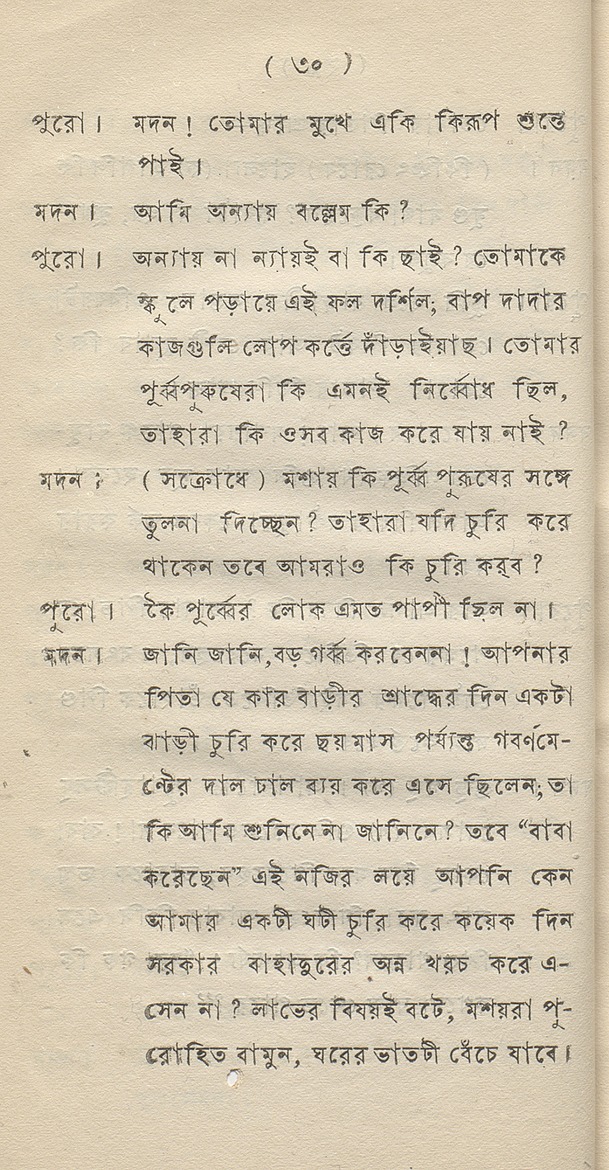 ( ৩০ )
পুরো। মদন ! তোমার মুখে একি কিরূপ শুন্তে
পাই।
মদন। আমি অন্যায় বল্লেম কি ?
পুরো। অন্যায় না ন্যায়ই বা কি ছাই ? তোমাকে
স্কুলে পড়ায়ে এই ফল দর্শিল; বাপ দাদার
কাজগুলি লোপ কর্ত্তে দাঁড়াইয়াছ। তোমার
পূর্ব্বপুরুষেরা কি এমনই নির্ব্বোধ ছিল,
তাহারা কি ওসব কাজ করে যায় নাই ?
মদন ; ( সক্রোধে ) মশায় কি পূর্ব্ব পুরূষের সঙ্গে
তুলনা দিচ্ছেন ? তাহারা যদি চুরি করে
থাকেন তবে আমরাও কি চুরি কর্‌ব ?
পুরো। কৈ পূর্ব্বের লোক এমত পাপী ছিল না।
মদন। জানি জানি, বড় গর্ব্ব করবেননা ! আপনার
পিতা যে কার বাড়ীর শ্রাদ্ধের দিন একটা
ঝাড়ী চুরি করে ছয় মাস পর্য্যন্ত গবর্ণমে-
ণ্টের দাল চাল ব্যয় করে এসে ছিলেন; তা
কি আমি শুনিনে না জানিনে ? তবে “বাবা
করেছেন” এই নজির লয়ে আপনি কেন
আমার একটী ঘটী চুরি করে কয়েক দিন
সরকার বাহাদুরের অন্ন খরচ করে এ-
সেন না ? লাভের বিষয়ই বটে, মশয়রা পু-
রোহিত বামুন, ঘরের ভাতটী বেঁচে যাবে।